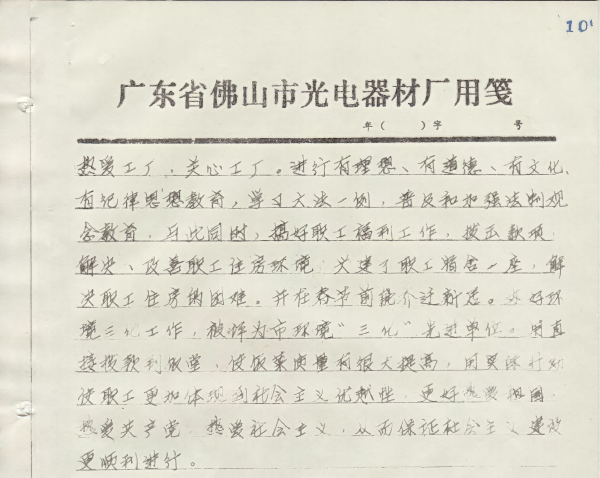 101
广东省佛山市光电器材厂用笺
年( )字 号
热爱工厂,关心工厂。进行有理想、有道德、有文化、
有纪律思想教育,学习大法一例,普及和加强法制观
念教育,与此同时,搞好职工福利工作,拨出款项
解决、改善职工住房环境,兴建了职工宿舍一座,解
决职工住房的困难。并在春节前统介迁新总。 好环
境三化工作,被评为市环境“三化”先进单位。用直
接拨款到饭堂,使饭菜质量有很大提高,用实际行动
使职工更加体现到社会主义优越性,更好热爱祖国,
热爱共产党,热爱社会主义,从而保证社会主义建设
更顺利进行。